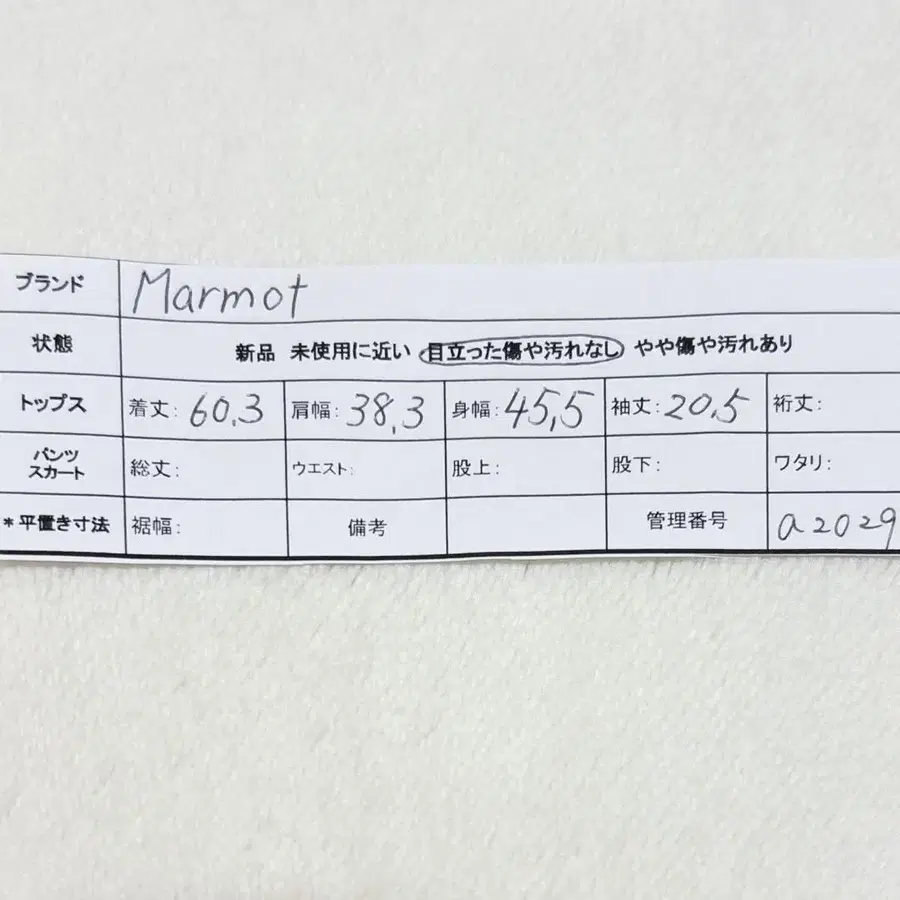 ブランド Marmot
状態 新品 未使用に近い 目立った傷や汚れなし やや傷や汚れあり
トップス 着丈: 60.3 肩幅: 38,3 身幅: 45,5 袖丈: 20.5 裄丈:
パンツ
スカート 総丈: ウエスト: 股上: 股下: ワタリ:
*平置き寸法 裾幅: 備考 管理番号 a2029